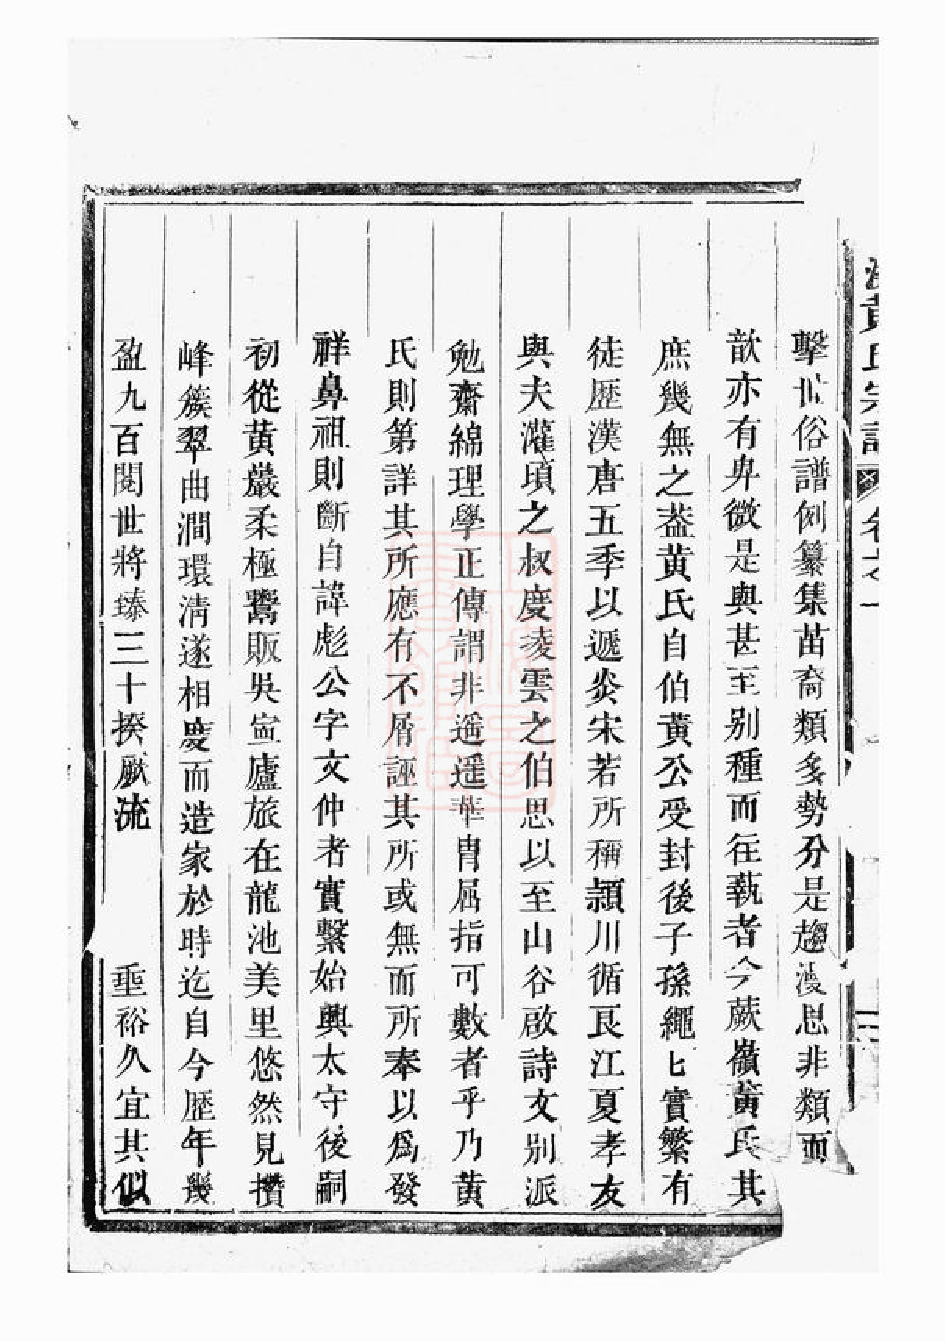 黃氏宗譜 卷之一
擊世俗譜例纂集苗裔類多勢分是趨漫思非類而
歆亦有卑微是與甚至别種而往蓺者今蕨嶺黃氏其
庶幾無之葢黃氏自伯黃公受封後子孫繩匕實繁有
徒歷漢唐五季以遞炎宋若所稱潁川循良江夏孝友
與夫灌頊之叔慶凌雲之伯思以至山谷啟詩文别派
勉齋綿理學正傳謂非遥遥華胄屈指可數者乎乃黃
氏則第詳其所應有不屑誣其所或無而所奉以爲發
祥鼻祖則斷自諱彪公字文仲者實繫始興太守後嗣
初從黃巖柔極鬻販吳寍廬旅在龍池美里悠然見攢
峰簇翠曲澗環清遂相慶而造家於時迄自今歷年幾
盈九百閱世將臻三十揆厥流 垂裕久宜其似